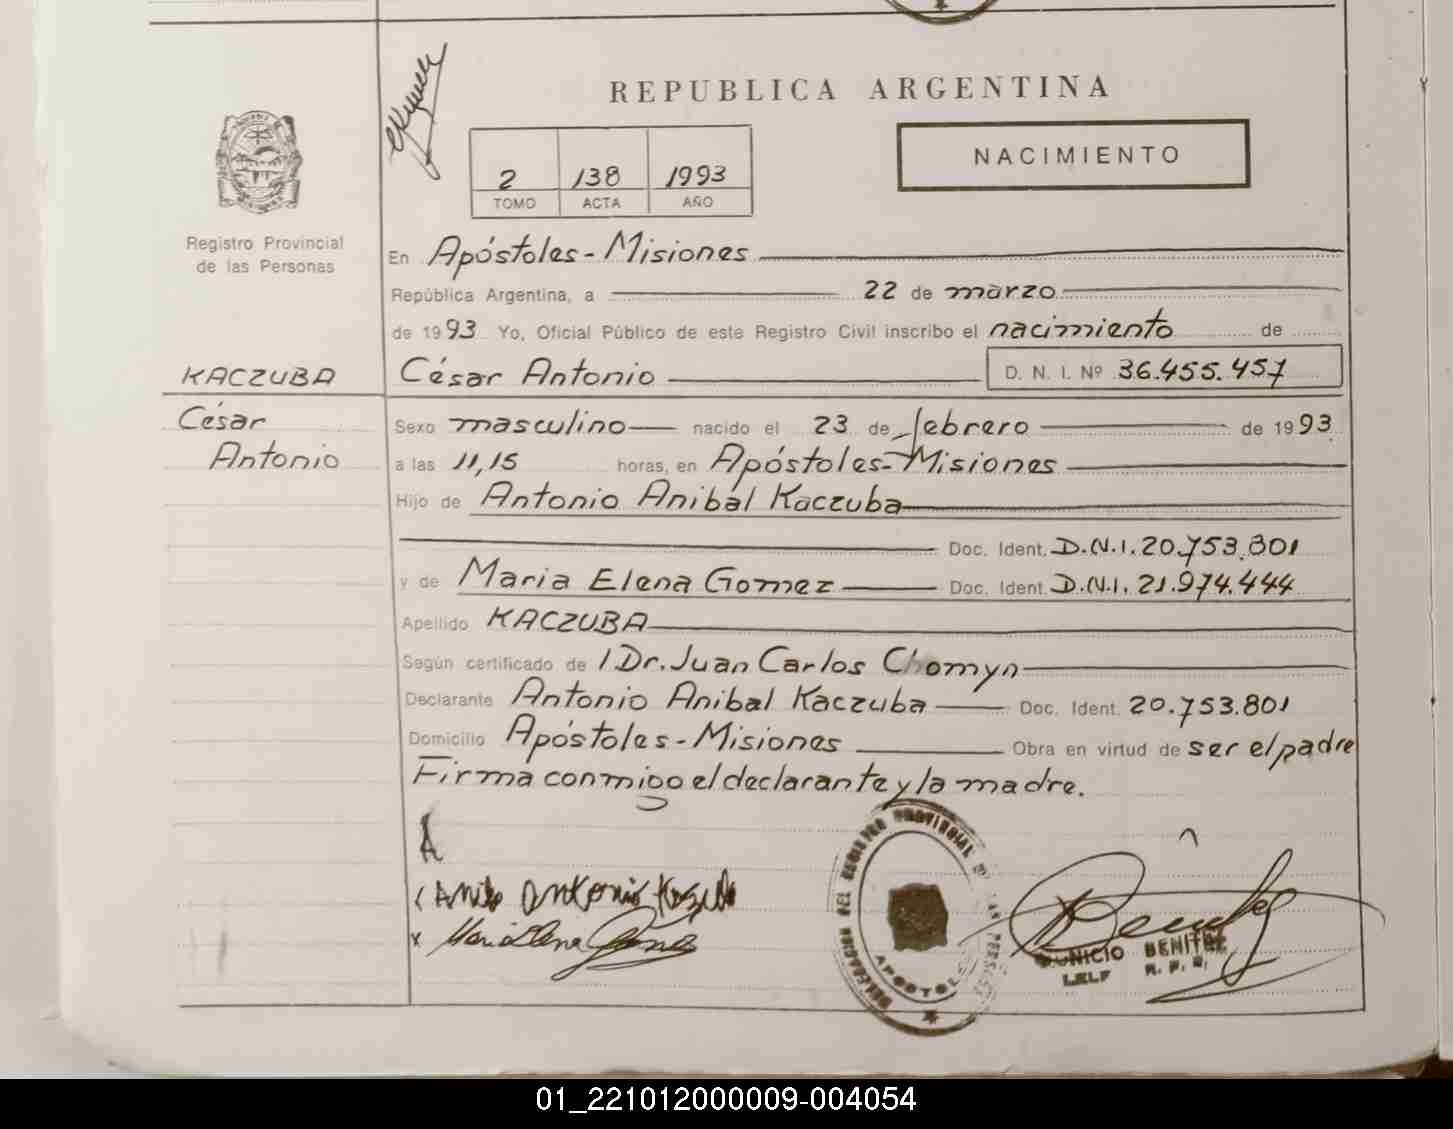 REPUBLICA ARGENTINA
NACIMIENTO
2 138 1993
TOMO ACTA AÑO
Registro Provincial
de las Personas
En Apóstoles - Misiones
República Argentina, a 22 de marzo
de 1993 Yo, Oficial Público de este Registro Civil inscribo el nacimiento de
KACZUBA
César Antonio D. N. I. Nº 36.455.457
César
Antonio
Sexo masculino nacido el 23 de febrero de 1993
a las 11,15 horas, en Apóstoles - Misiones
Hijo de Antonio Anibal Kaczuba
Doc. Ident. D.N.I. 20.753.801
y de Maria Elena Gomez Doc. Ident. D.N.I. 21.974.444
Apellido KACZUBA
Según certificado de / Dr. Juan Carlos Chomyn
Declarante Antonio Anibal Kaczuba Doc. Ident. 20.753.801
Domicilio Apóstoles - Misiones Obra en virtud de ser el padre
Firma conmigo el declarante y la madre.
DELEGACION DEL REGISTRO PROVINCIAL DE LAS PERSONAS
APOSTOLES
Maria Elena Gomez
BENITEZ
01_221012000009-004054